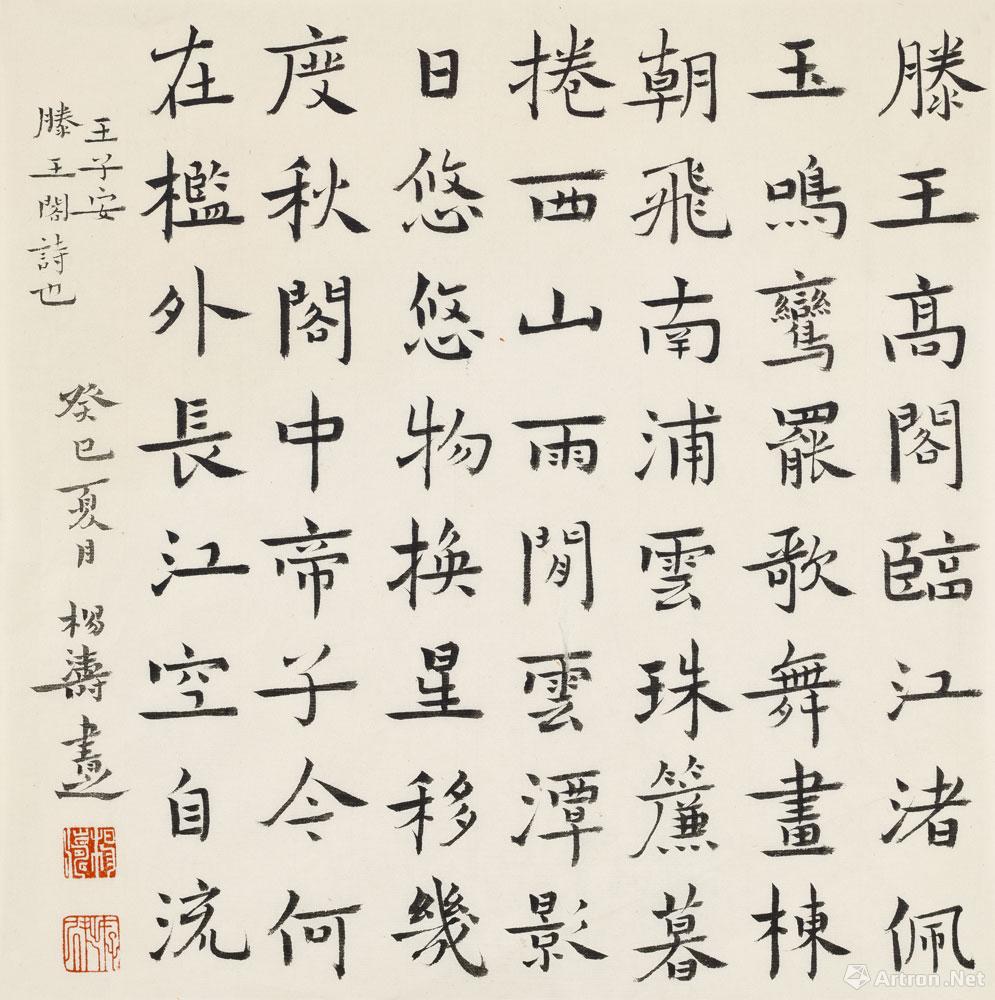 滕王高閣臨江渚佩
玉鳴鸞罷歌舞畫棟
朝飛南浦雲珠簾暮
捲西山雨閒雲潭影
日悠悠物換星移幾
度秋閣中帝子今何
在檻外長江空自流
王子安
滕王閣詩也
癸巳夏月 楊濤書
Artron.Net